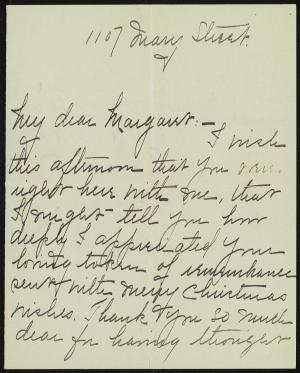 1107 Mary Street.
My dear Margaret:-
I wish
this afternoon that you were
right here with me, that
I might tell you how
deeply I appreciated your
lovely token of remembrance
sent with merry Christmas
wishes. Thank you so much
dear for having thought